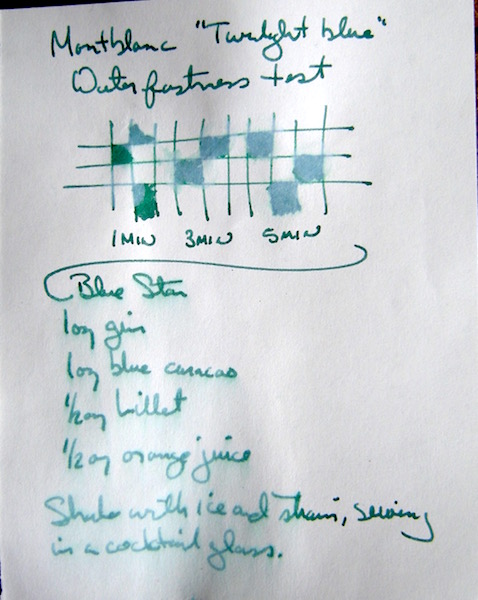 Montblanc "Twilight blue"
Water fastness test
1 MIN 3 MIN 5 MIN
Blue Star
1oz gin
1oz blue curacao
1/2oz lillet
1/2oz orange juice
Shake with ice and strain, serving
in a cocktail glass.